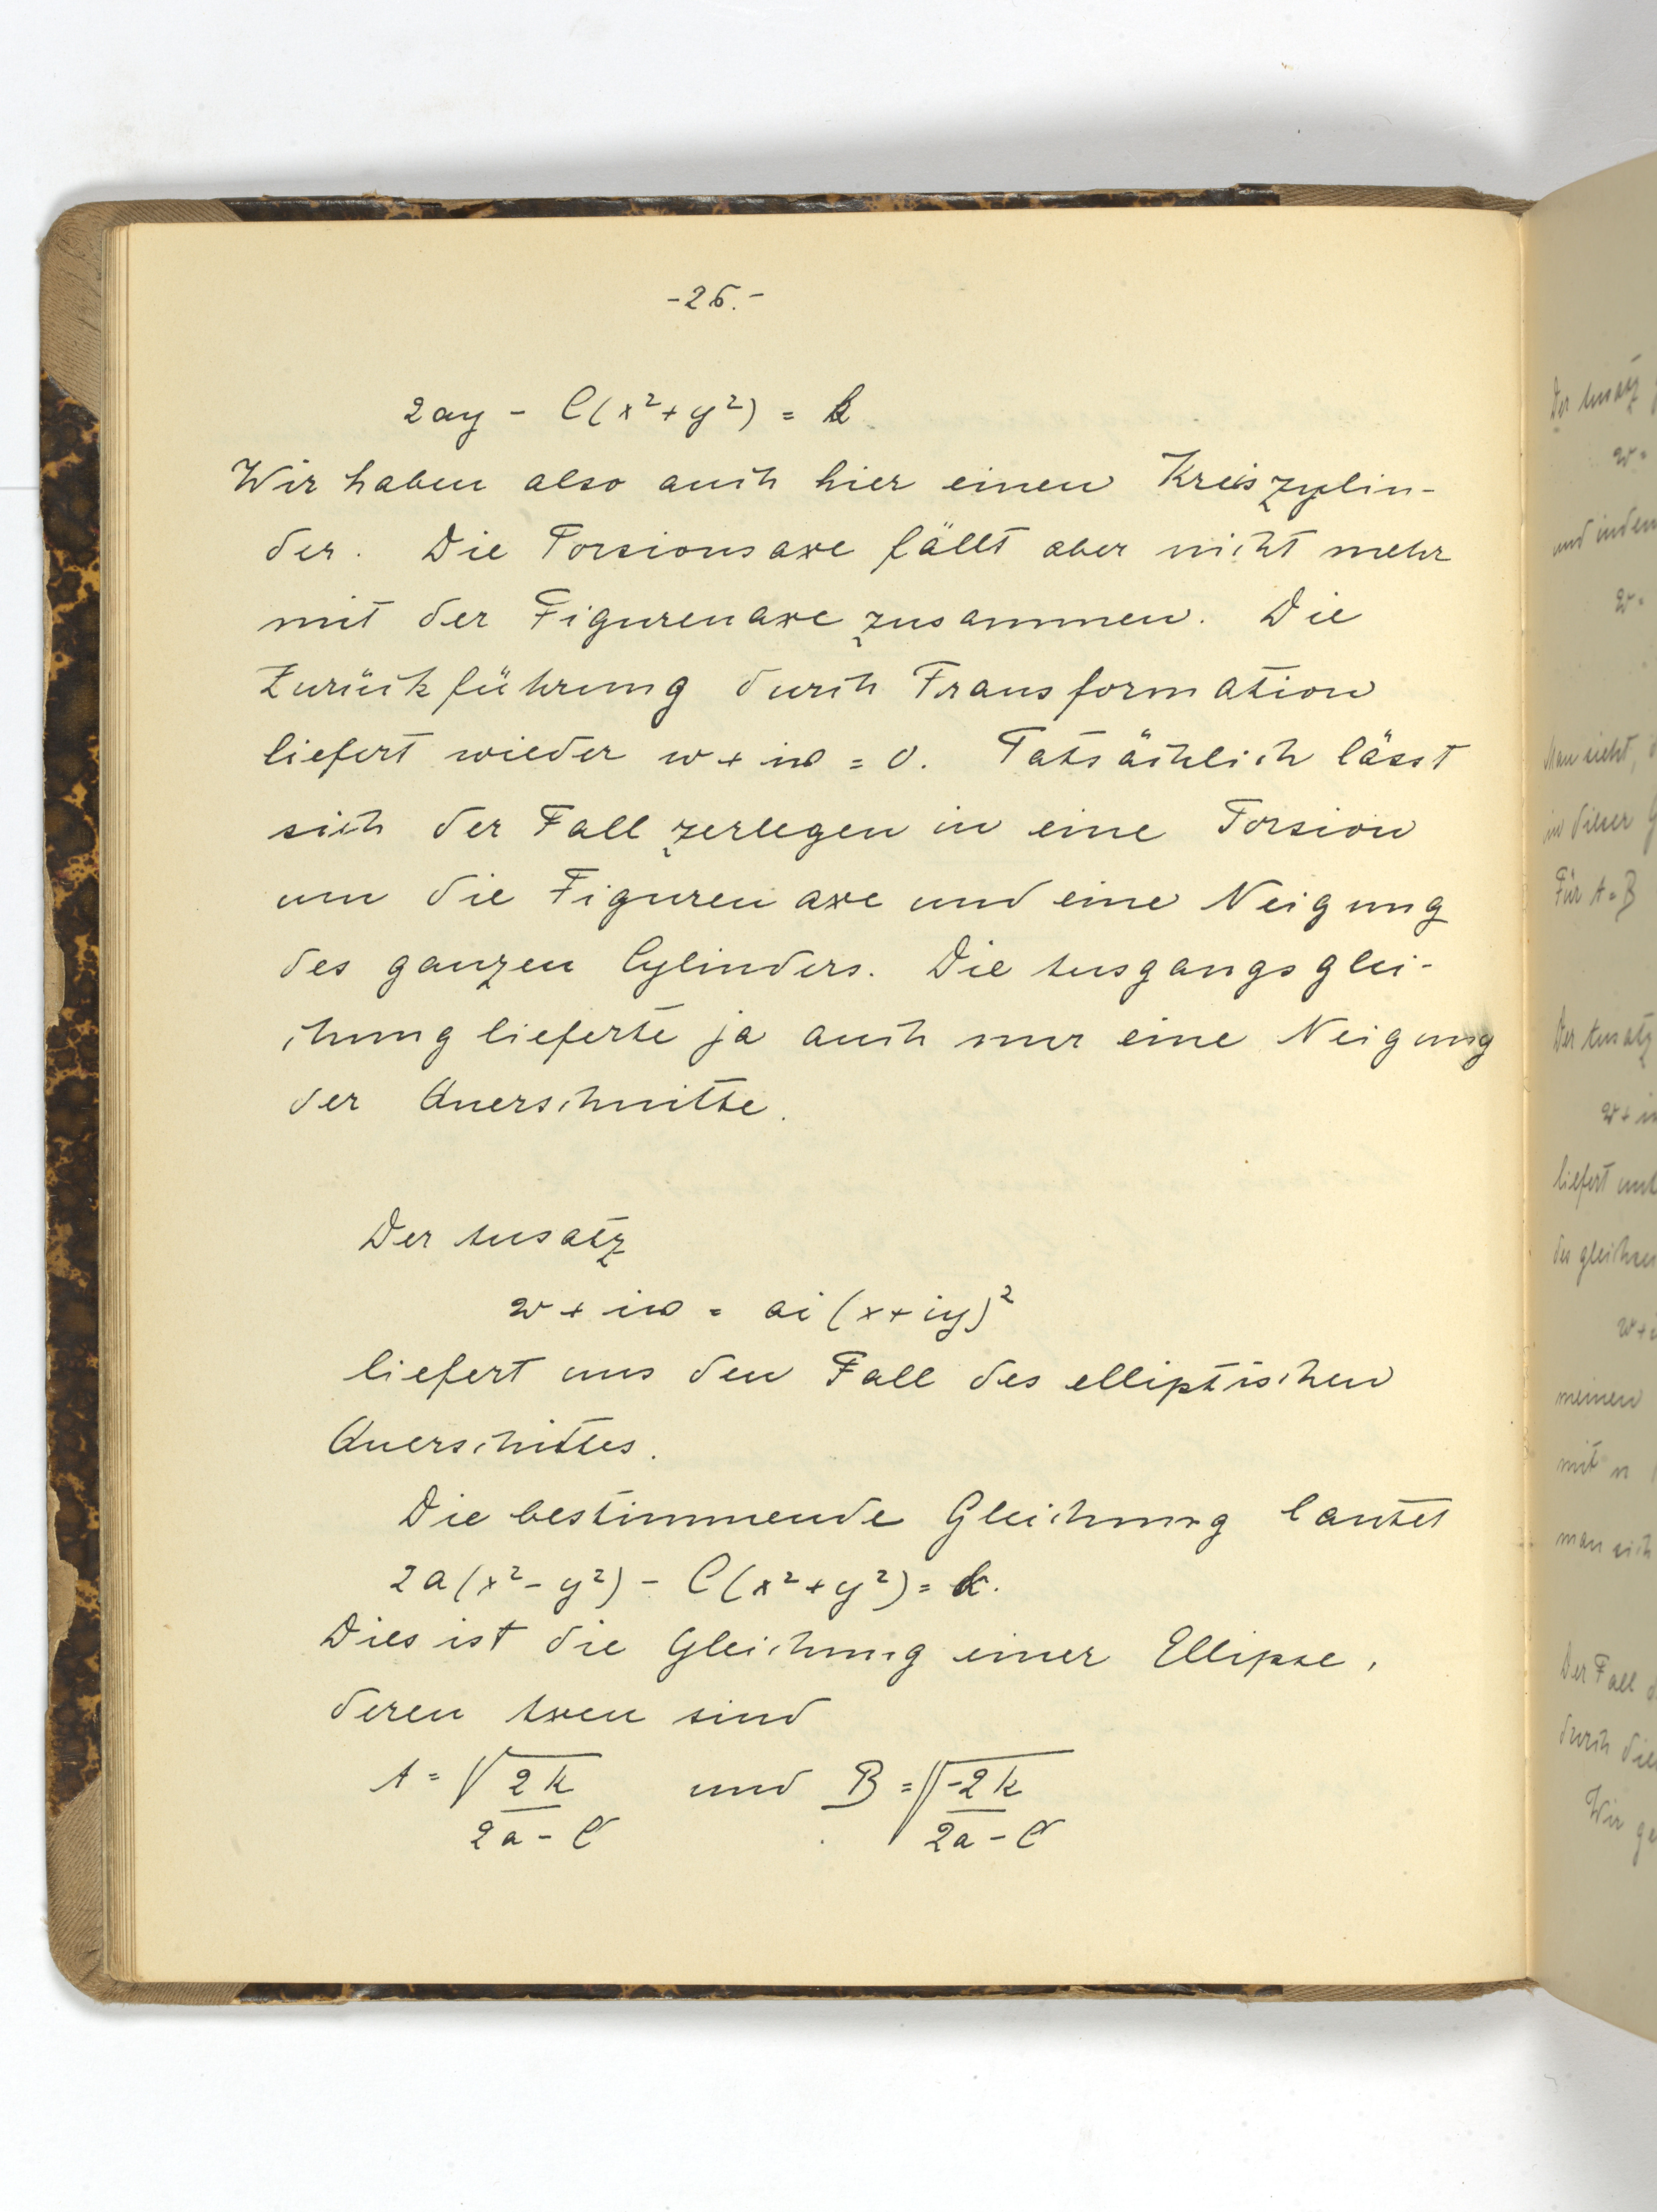 -26.-
2ay - C(x²+y²) = k
Wir haben also auch hier einen Kreiszylin-
der. Die Torsionsaxe fällt aber nicht mehr
mit der Figurenaxe zusammen. Die
Zurückführung durch Transformation
liefert wieder w + iω = 0. Tatsächlich lässt
sich der Fall zerlegen in eine Torsion
um die Figurenaxe und eine Neigung
des ganzen Cylinders. Die Ausgangsglei-
chung lieferte ja auch nur eine Neigung
der Querschnitte.
Der Ansatz
w + iω = ai(x+iy)²
liefert uns den Fall des elliptischen
Querschittes.
Die bestimmende Gleichung lautet
2a(x²-y²) - C(x²+y²) = k.
Dies ist die Gleichung einer Ellipse,
deren Axen sind
A = √2k / 2a - C und B = √-2k / 2a - C
Der Ansatz
w =
und indem
w =
Man sieht,
in dieser G
Für A = B
Der Ansatz
w + i
liefert
der gleichen
w +
meinen
mit n
man sich
Der Fall d
durch die
Wir ge